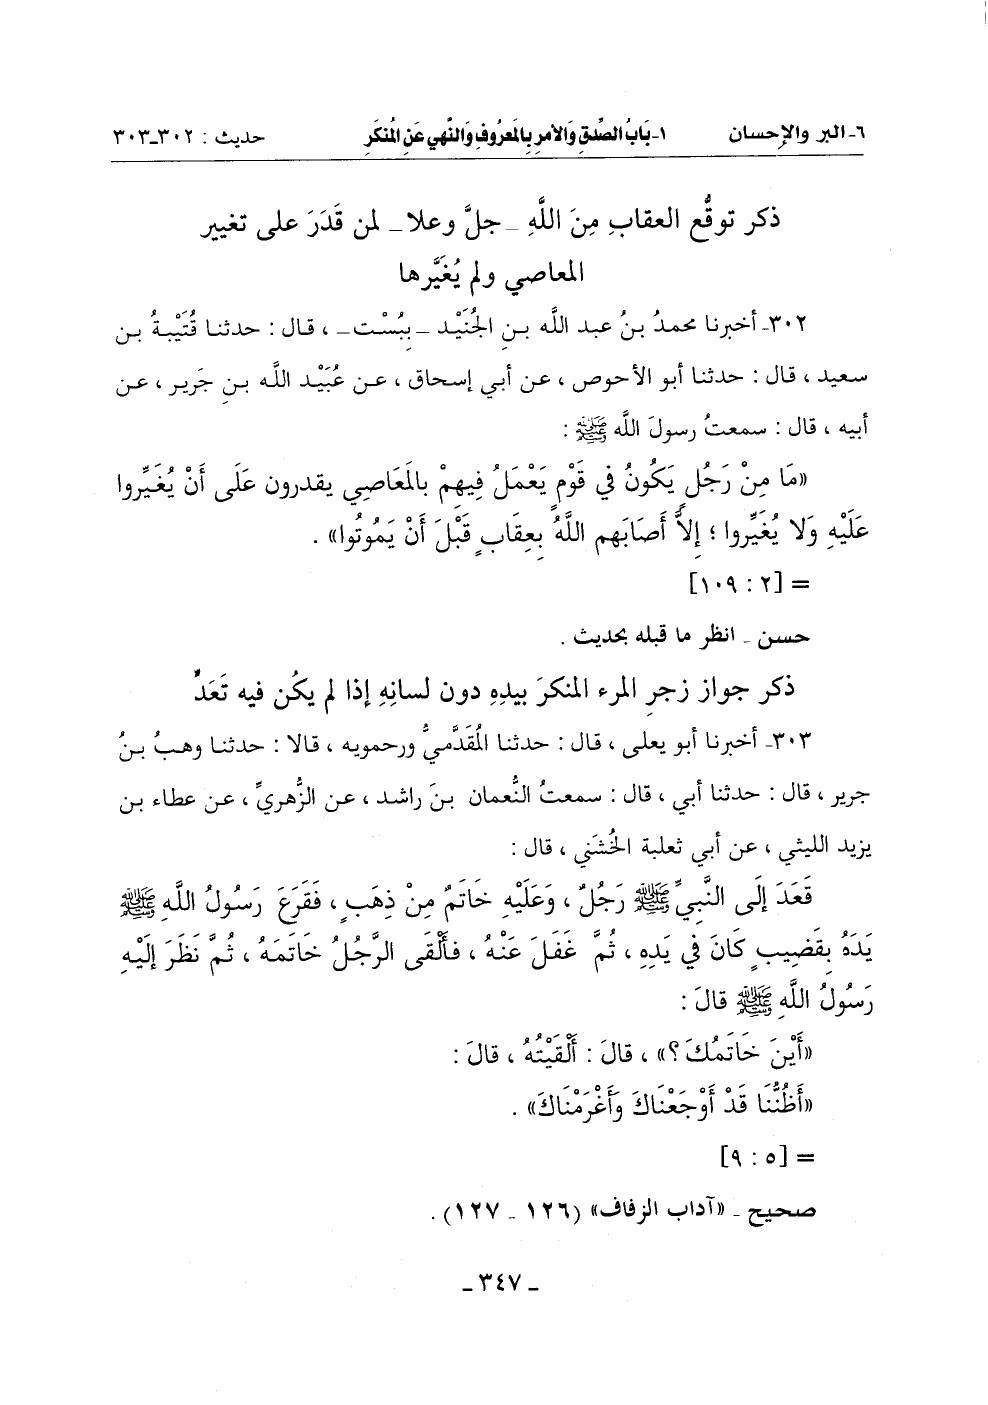 ٦- البر والإحسان ١- بَابُ الصِّدْقِ وَالأمرِ بِالمَعرُوفِ وَالنَّهيِ عَنِ المُنكَر حديث : ٣٠٢-٣٠٣
ذكر توقُّع العقابِ مِنَ اللَّهِ - جلَّ وعلا - لمن قَدَرَ على تغيير
المعاصي ولم يُغَيِّرها
٣٠٢- أخبرنا محمدُ بنُ عبد اللَّه بنِ الجُنَيْد - بِبُسْت - ، قال : حدثنا قُتَيْبةُ بن
سعيد ، قال : حدثنا أبو الأحوص ، عن أبي إسحاق ، عن عُبَيْد اللَّه بنِ جَرير ، عن
أبيه ، قال : سمعتُ رسولَ اللَّه ﷺ :
«مَا مِنْ رَجُلٍ يَكُونُ في قَوْمٍ يَعْمَلُ فِيهِمْ بالمَعَاصِي يقدرون عَلَى أَنْ يُغَيِّروا
عَلَيْهِ وَلا يُغَيِّروا ؛ إلاَّ أَصَابَهم اللَّهُ بِعِقَابٍ قَبْلَ أَنْ يَمُوتُوا» .
= [٢ : ١٠٩]
حسن - انظر ما قبله بحديث .
ذكر جواز زجرِ المرء المنكرَ بيدِهِ دون لسانِهِ إذا لم يكُن فيه تَعَدٍّ
٣٠٣- أخبرنا أبو يعلى ، قال : حدثنا المُقَدَّميُّ ورحمويه ، قالا : حدثنا وهبُ بنُ
جرير ، قال : حدثنا أبي ، قال : سمعتُ النُّعمان بنَ راشد ، عن الزُّهريِّ ، عن عطاء بن
يزيد الليثي ، عن أبي ثعلبة الخُشَني ، قال :
قَعَدَ إلَى النَّبيِّ ﷺ رَجُلٌ ، وَعَلَيْهِ خَاتَمٌ مِنْ ذِهَبٍ ، فَقَرَعَ رَسُولُ اللَّهِ ﷺ
يَدَهُ بِقَضِيبٍ كَانَ في يَدِهِ ، ثُمَّ غَفَلَ عَنْهُ ، فألْقَى الرَّجُلُ خَاتَمَهُ ، ثُمَّ نَظَرَ إلَيْهِ
رَسُولُ اللَّهِ ﷺ قالَ :
«أَيْنَ خَاتَمُكَ ؟» ، قالَ : أَلْقَيْتُهُ ، قالَ :
«أَظُنُّنَا قَدْ أَوْجَعْنَاكَ وَأَغْرَمْنَاكَ» .
= [٥ : ٩]
صحيح - «آداب الزفاف» (١٢٦ - ١٢٧) .
- ٣٤٧ -